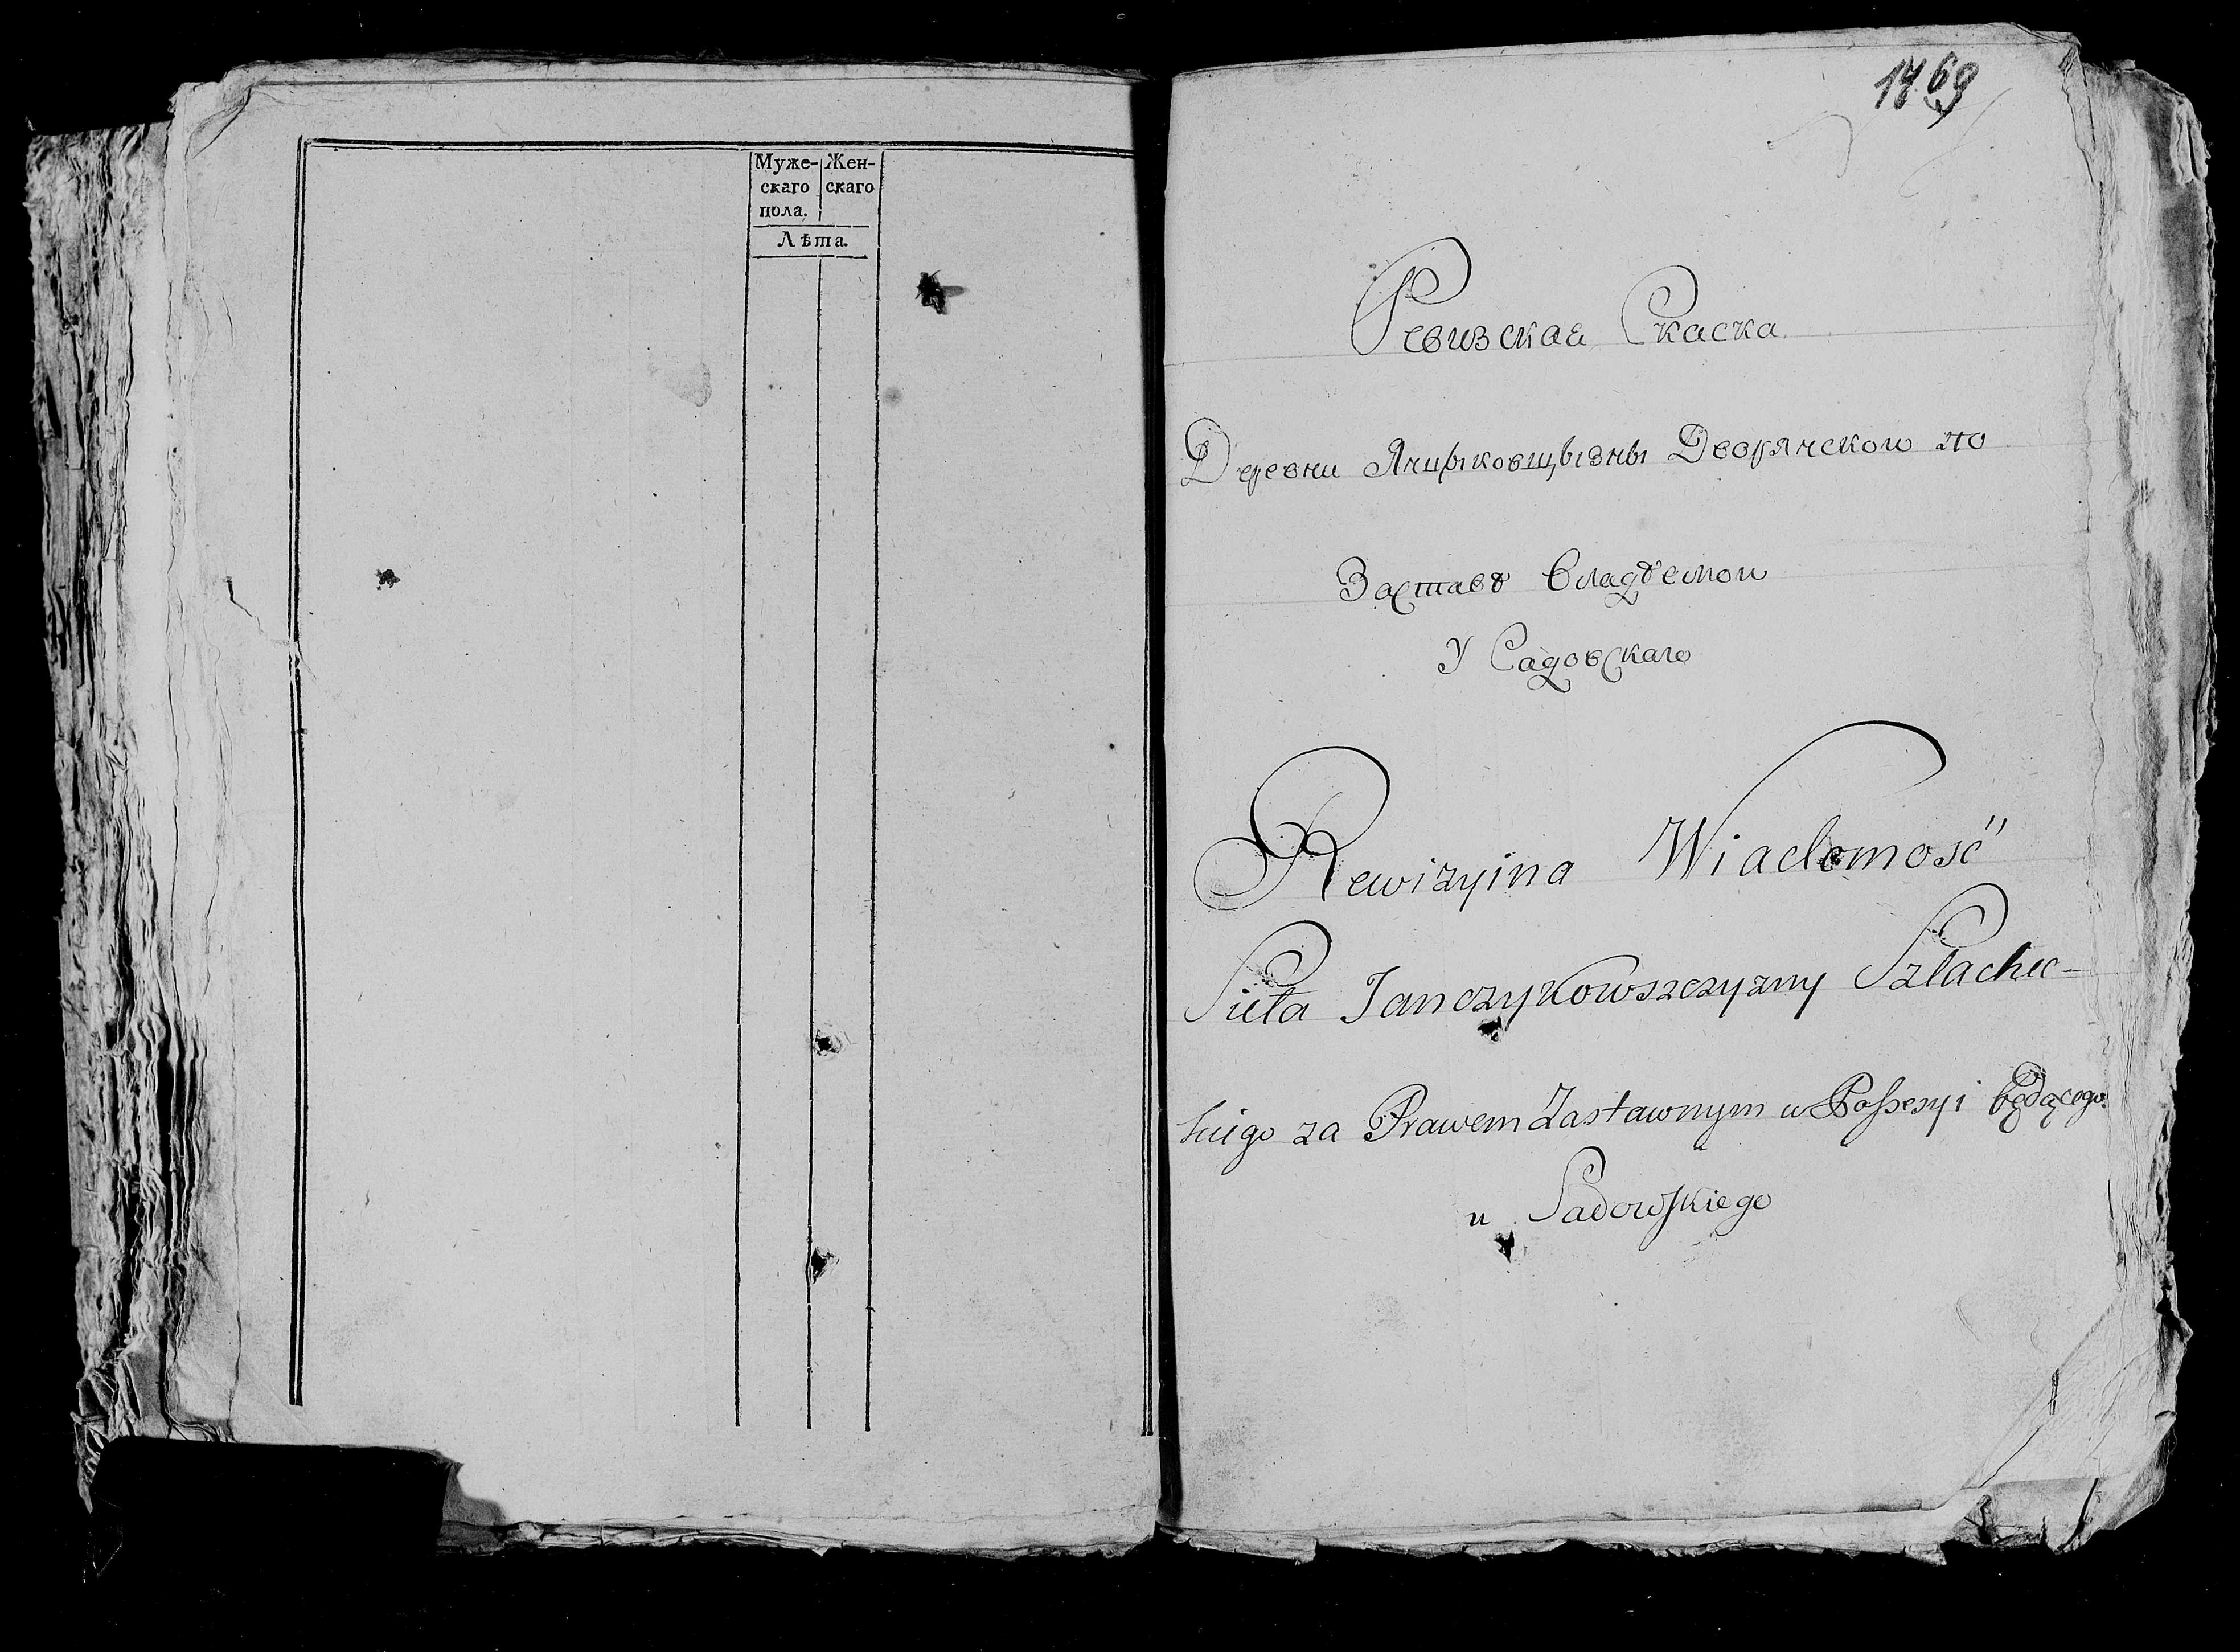 Муже- Жен-
скаго скаго
пола.
Лѣта.
1769
Ревизская Скаска
Деревни Янцыковщызны Дворянского по
Заставѣ владѣемои
У Садовскаго
Rewizyina Wiadomość
Sieła Janczykowszczyzny Szlachec-
kiego za Prawem Zastawnym w Possesyi będącego
u Sadowskiego